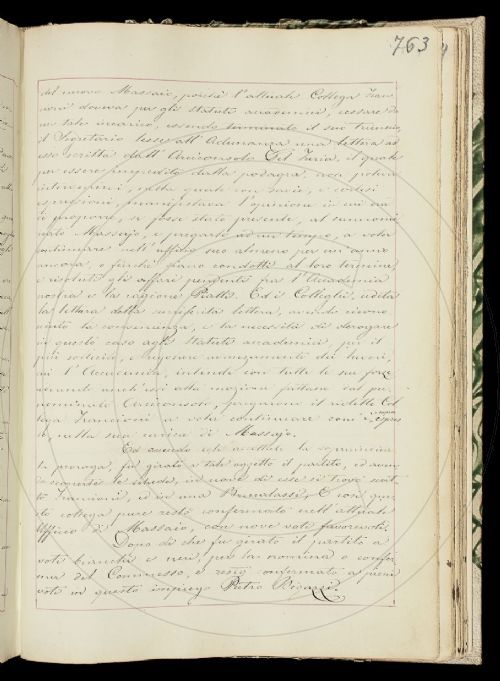 763
del nuovo Massaio, poiché l'attuale Collega Fran-
cioni doveva per gli statuti accademici, cessare da
un tale incarico, essendo terminato il suo triennio,
il Segretario lesse all'Adunanza una lettera ad
esso scritta dall'Arciconsolo Del Furia, il quale
per essere impedito dalla podagra, non poteva
intervenirvi, nella quale con savie, e cortesi
espressioni, manifestava l'opinione in cui era
di proporre, se fosse stato presente, al summomi-
nato Massajo, e pregarlo ad un tempo, a voler
continuare nell'uffizio suo almeno per un anno
ancora, o finché siano condotti al loro termine,
e risoluti gli affari pendenti fra l'Accademia
nostra e la ragione Piatti. Ed i Colleghi, udita
la lettura della surriferita lettera, avendo ricono-
sciuto la convenienza, e la necessità di derogare
in questo caso agli statuti accademici, per il
più sollecito, e
l'Accademia, intende con tutte le sue forze
anch'essi alla
minato Arciconsolo, pregarono il ridetto Col-
lega Francioni a voler continuare
nella sua carica di Massajo.
Ed avendo egli accettata la
proroga, fu girato a tale oggetto il partito, ed aven-
do le schede, in nove di esse si trovò scrit-
to Francioni, ed in una Buonalassi, E così que-
sto collega pure restò confermato nell'attuale
Uffizio di Massaio, con nove voti favorevoli.
Dopo di che fu girato il partito a
voti bianchi e neri per la nomina o confer-
ma del Commesso, e restò confermato a pieni
voti in questo impiego Pietro Bigazzi.